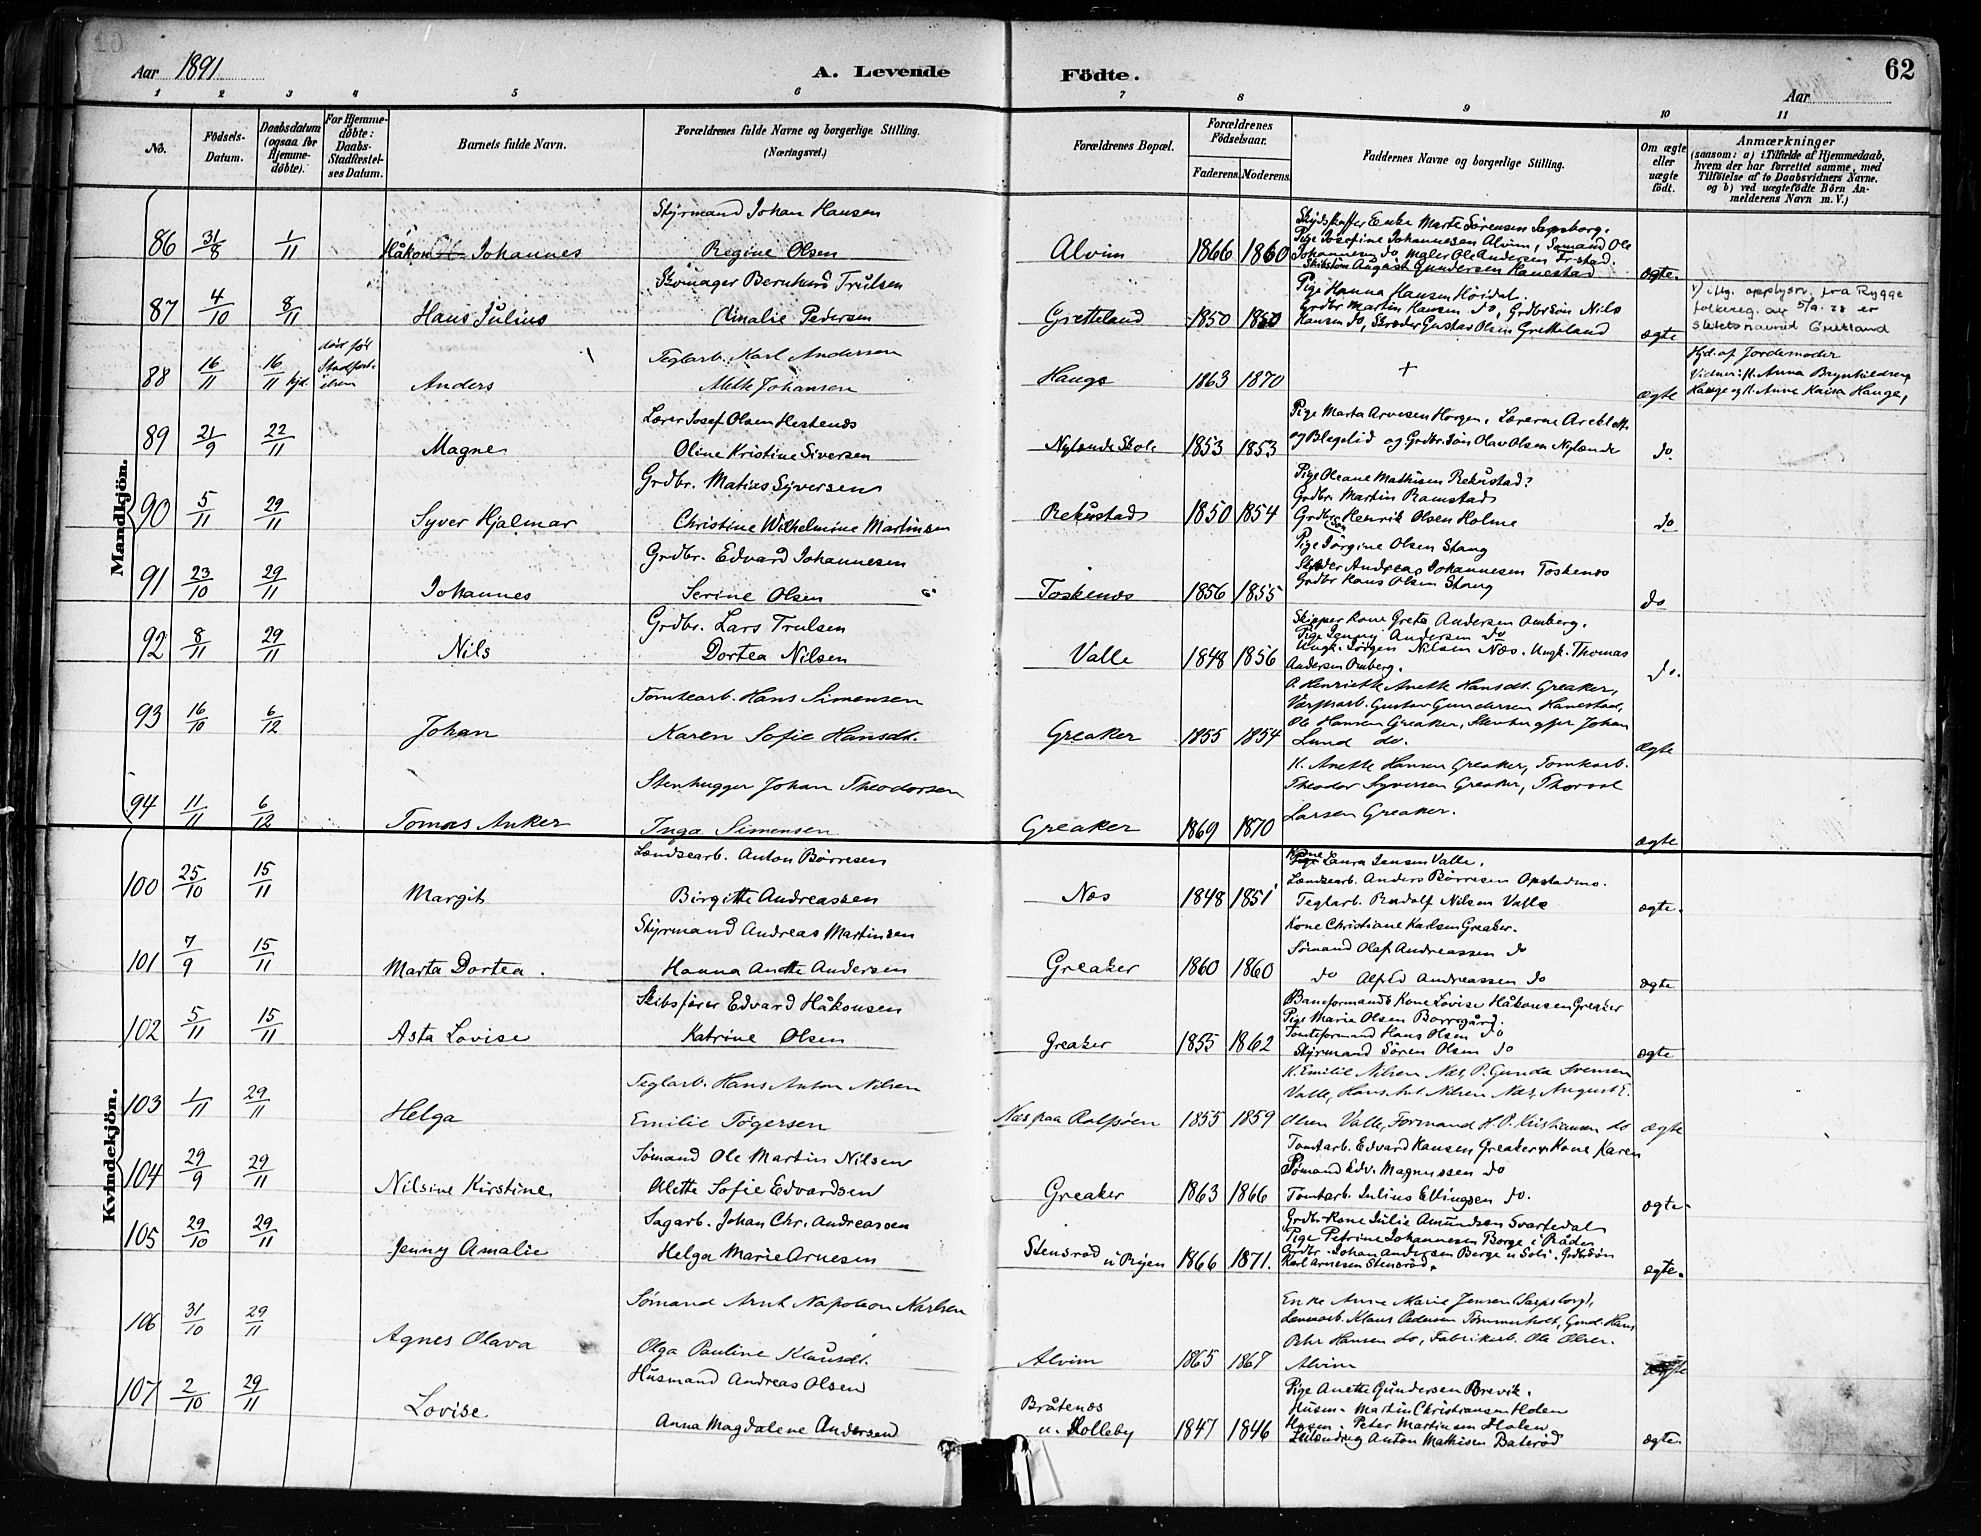 Aar 1891
A. Levende Födte.
62
Aar
1 2 3 4 5 6 7 8 9 10 11
No.
Födsels-Datum.
Daabsdatum (ogsaa for Hjemmedöbte).
For Hjemmedöbte: Daabs-Stadfæstelses Datum.
Barnets fulde Navn.
Forældrenes fulde Navne og borgerlige Stilling. (Næringsvei.)
Forældrenes Bopæl.
Forældrenes Födselsaar.
Faderens. Moderens.
Faddernes Navne og borgerlige Stilling.
Om ægte eller uægte födt.
Anmærkninger (saasom: a) i Tilfælde af Hjemmedaab, hvem der har forrettet samme, med Tilföielse af to Daabsvidners Navne, og b) ved uægtefödte Börn Anmelderens Navn m. V.)
Mandkjön.
86 31/8 1/11 Håkon Johannes
Styrmand Johan Hansen
Regine Olsen
Alvim 1866 1860
Enke Marte Sörensen Sarpsborg.
Pige Josefine Johannesen Alvim, Sömand Ole
Johannesen do, Maler Ole Andersen Fr-stad.
August Gundersen Hanestad
ægte.
87 4/10 8/11 Hans Julius
Skomager Bernhard Trulsen
Amalie Pedersen
Gretteland 1850 1850
Pige Hanna Hansen Höidal.
Grdbr Martin Hansen do, Grdbr Sön Nils
Hansen do, Skræder Gustav Olsen Gretteland
ægte
1) iflg. opplysn. fra Rygge
folkereg. av 5/9-28 er
slektsnavnet Gretland
88 16/11 16/11 hjd. död för Stadfæst-elsen
Anders
Teglarb. Karl Andersen
Mette Johansen
Hauge 1863 1870
+
ægte
Hjd. af Jordemoder
Vidner: K. Anna Brynhildsen
Hauge og K. Anne Kaisa Hauge,
89 21/9 22/11 Magne
Lærer Josef Olsen Hestenæs
Oline Kristine Siversen
Nylænde Skole 1853 1853
Pige Marta Arvesen Horgen, Lærerne
og Blegelid og Grdbr. Sön Olav Olsen Nylænde
do.
90 5/11 29/11 Syver Hjalmar
Grdbr. Matias Syversen
Christine Wilhelmine Martinsen
Rekustad 1850 1854
Pige Oleane Mathisen Rekustad?
Grdbr. Martin Ramstad
Grdbr. Sön Henrik Olsen Holme
do
91 23/10 29/11 Johannes
Grdbr. Edvard Johannesen
Serine Olsen
Toskenæs 1856 1855
Pige Jörgine Olsen Stang
Skræder Andreas Johannesen Toskenæs
Grdbr Hans Olsen Stang
do
92 8/11 29/11 Nils
Grdbr. Lars Trulsen
Dortea Nilsen
Valle 1848 1856
Skipper Kone Greta Andersen Omberg.
Pige Jenny Andersen do
Ungk. Jörgen Nilsen Næs. Ungk. Thomas
Andersen Omberg.
do.
93 16/10 6/12 Johan
Tomtearb. Hans Simensen
Karen Sofie Hansdt.
Greaker 1855 1854
P. Henriette Anette Hansdt. Greaker,
Værftarb. Gustav Gundersen Hanestad,
Ole Hansen Greaker, Stenhugger Johan
Lund do.
Ægte
94 11/11 6/12 Tomas Anker
Stenhugger Johan Theodorsen
Inga Simensen
Greaker 1869 1870
K. Anette Hansen Greaker, Tomtearb.
Theodor Syversen Greaker, Thorval
Larsen Greaker.
ægte
Kvindekjön.
100 25/10 15/11 Margit
Lændsearb. Anton Börresen
Birgitte Andreassen
Næs 1848 1851
Kone Laura Jensen Valle.
Lændsearb. Anders Börresen Opstadmo.
Teglarb. Rudolf Nilsen Valle
ægte.
101 7/9 15/11 Marta Dortea.
Styrmand Andreas Martinsen
Hanna Anette Andersen
Greaker 1860 1860
Kone Christiane Karlsen Greaker.
Sömand Olaf Andreassen do
do Alfred Andreassen do
ægte
102 5/11 15/11 Asta Lovise
Skibsförer Edvard Håkonsen
Katrine Olsen
Greaker 1855 1862
Baneformands Kone Lovise Håkonsen Greaker
Pige Marie Olsen Borregård.
Tomteformand Hans Olsen do
Styrmand Sören Olsen do
ægte
103 1/11 29/11 Helga
Teglarb. Hans Anton Nilsen
Emilie Tögersen
Næs paa Rolfsöen 1855 1859
K. Emilie Nilsen Næs, P. Gunda Svensen
Valle, Hans Ant. Nilsen Næs, August E.
Olsen Valle, Formand H. P. Kristiansen do
ægte
104 29/9 29/11 Nilsine Kirstine
Sömand Ole Martin Nilsen
Olette Sofie Edvardsen
Greaker 1863 1866
Tomtarb. Edvard Hansen Greaker & Kone Karen
Sömand Edv. Magnussen do
Tomtarb. Julius Ellingsen do.
ægte-
105 29/10 29/11 Jenny Amalie
Sagarb. Johan Chr. Andreassen
Helga Marie Arnesen
Stensröd u Ryen 1866 1871.
Grdbr Kone Julie Amundsen Svartedal
Pige Petrine Johannesen Borge i Råde
Grdbr. Johan Andersen Berge u Soli. Grdbr Sön
Karl Arnesen Stensröd.
ægte.
106 31/10 29/11 Agnes Olava
Sömand Arnt Napoleon Karlsen
Olga Pauline Klausdt.
Alvim 1865 1867
Enke Anne Marie Jensen (Sarpsborg),
Lensearb. Klaus Pedersen Tömmerholt, Gmd. Hans
Petr Hansen do, Fabrikarb. Ole Olsen
Alvim
ægte
107 2/10 29/11 Lovise
Husmand Andreas Olsen
Anna Magdalene Andersen
Bråtenæs
u. Holleby 1847 1846
Pige Anette Gundersen Brevik.
Husm. Martin Christiansen Holen
Husm. Peter Martinsen Holen
Anton Mathisen Baterød
ægte.